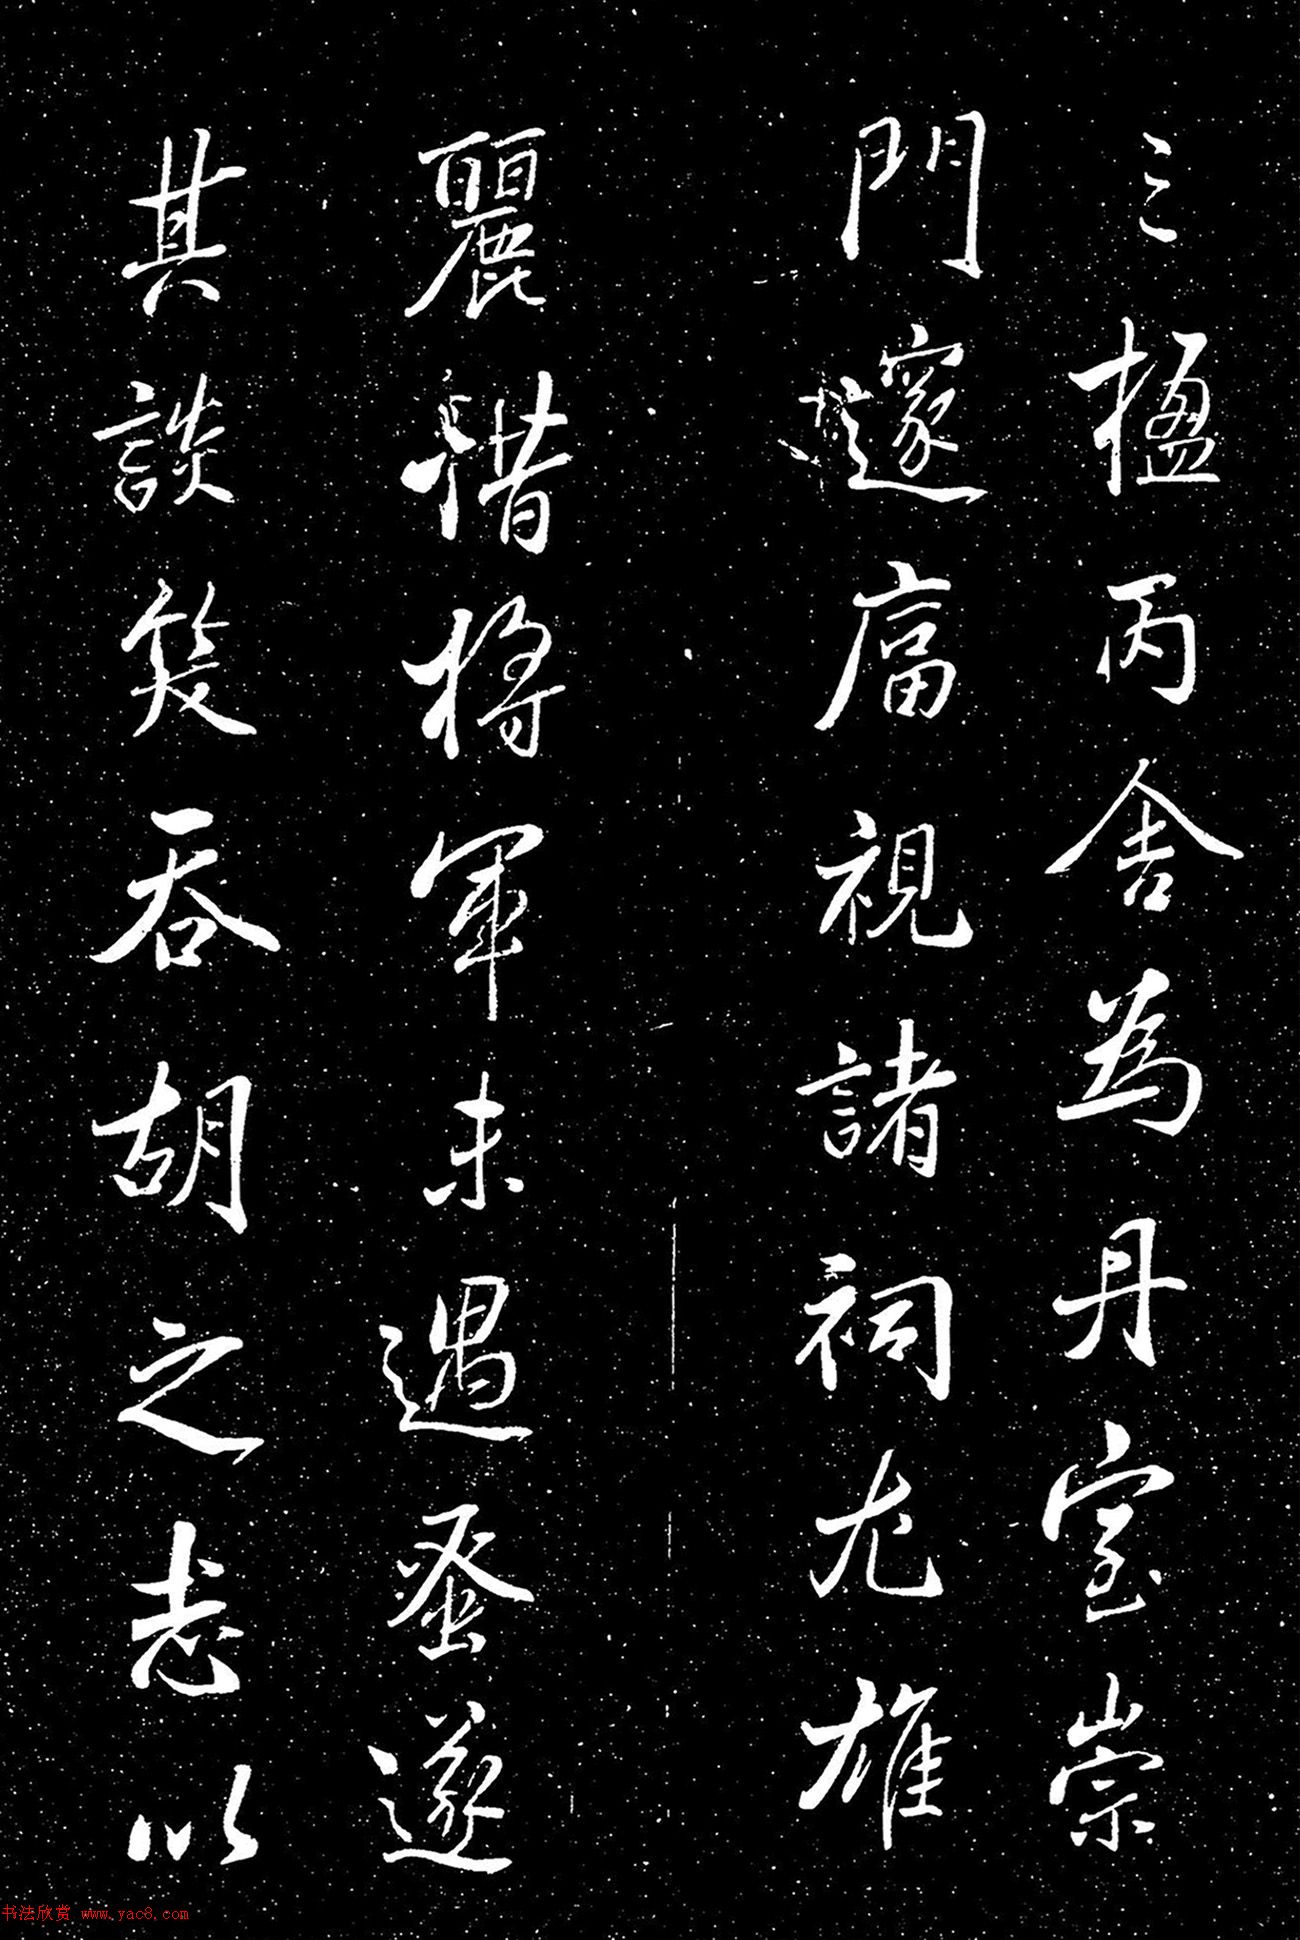 三楹丙舍為丹室崇
門邃廇視諸祠尤雄
麗惜將軍未遇蚤遂
其談笑吞胡之志以
书法欣赏 www.yac8.com